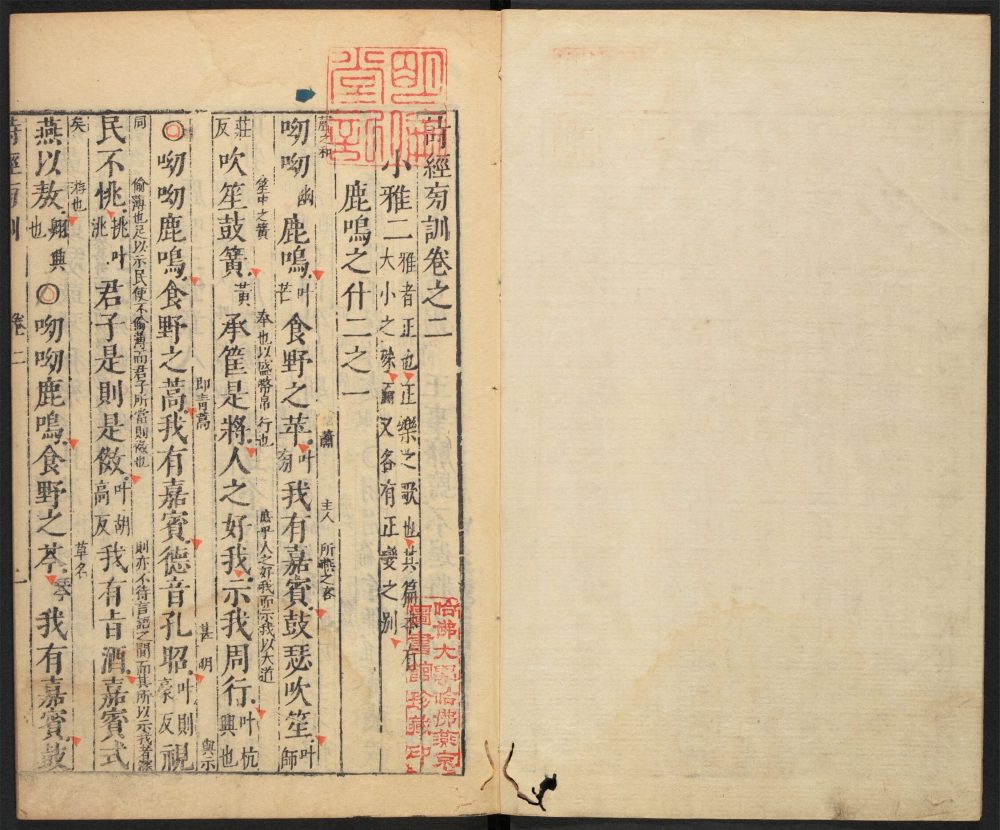 詩經旁訓卷之二
小雅二 雅者正也正樂之歌也其篇本有大小之殊而又各有正變之別
鹿鳴之什二之一
聲之和 蕭 主人 所燕之客
呦呦幽鹿鳴叶芒食野之苹叶旁我有嘉賓鼓瑟吹笙叶師
笙中之簧 奉也以盛幣帛 行也 庶乎人之好我而示我以大道
莊反吹笙鼓簧黃承筐是將人之好我示我周行叶杭興也
即青蒿 甚 明 與示
○呦呦鹿鳴食野之蒿我有嘉賓德音孔昭叶則豪反視
同 偷薄也足以示民使不偷薄而君子所當則傚也 則亦不待言語之間而其所以示我者深
民不恌挑叶洮君子是則是傚叶胡高反我有旨酒嘉賓式
矣 游也 草名
燕以敖翺興也○呦呦鹿鳴食野之芩琴我有嘉賓鼓
詩經旁訓 卷二 一
哈佛大學哈佛燕京
圖書館珍藏印